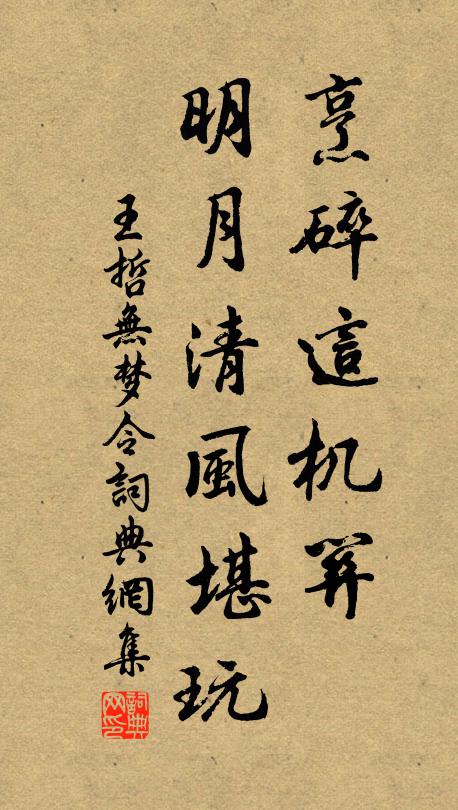 烹碎這机筭
明月清風堪玩
王哲無梦令詞典網集
詞典网印